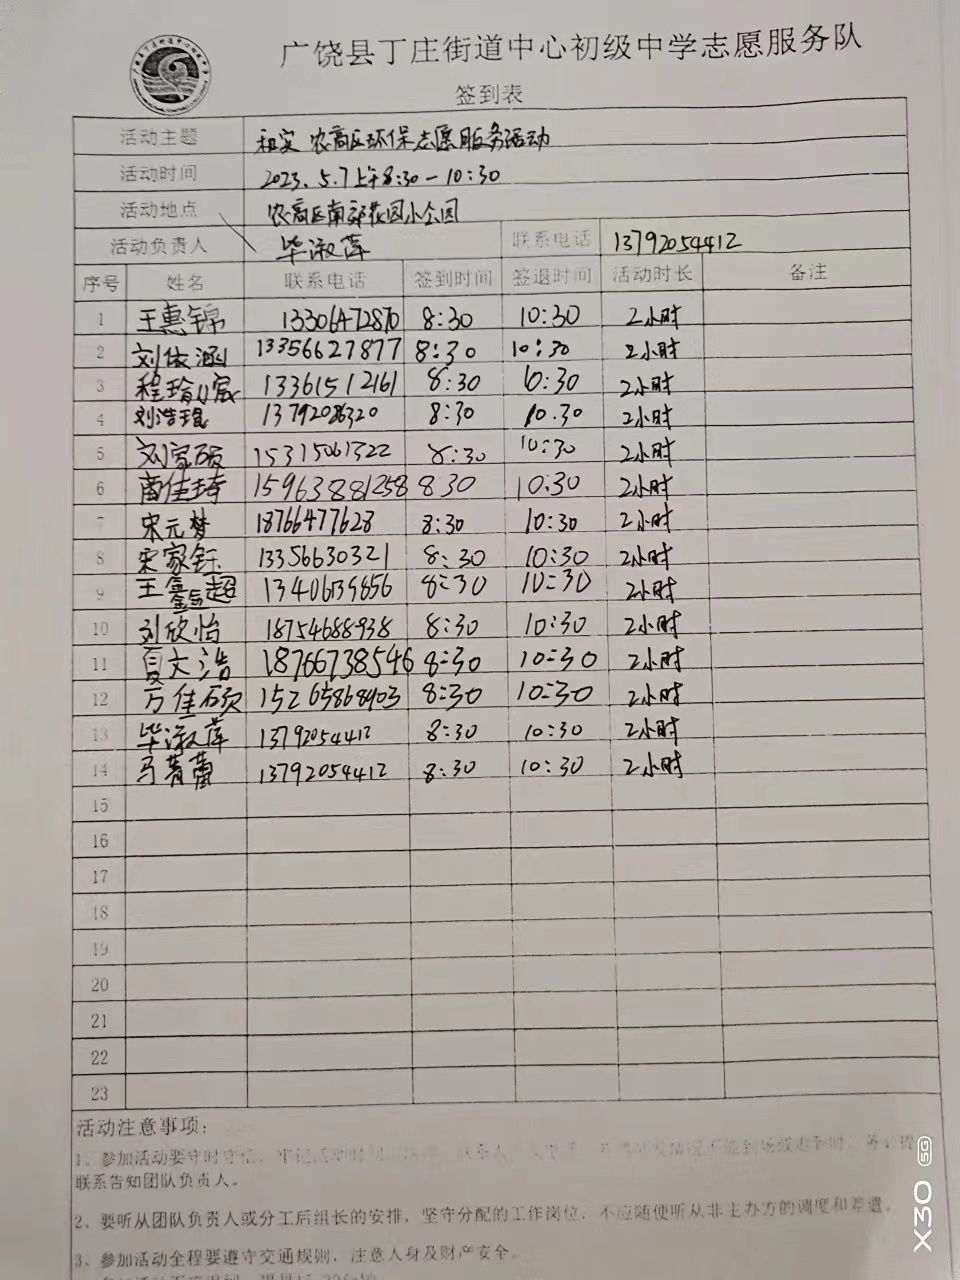 广饶县丁庄街道中心初级中学志愿服务队
签到表
活动主题 农高区环保志愿服务活动
活动时间 2023.5.7上午8:30-10:30
活动地点 农高区南郊花园小公园
活动负责人 毕淑萍 联系电话 13792054412
序号 姓名 联系电话 签到时间 签退时间 活动时长 备注
1 王惠锦 13306472870 8:30 10:30 2小时
2 刘依涵 13356627877 8:30 10:30 2小时
3 程瑜 13361512161 8:30 10:30 2小时
4 刘浩琨 13792086320 8:30 10.30 2小时
5 刘家硕 15315061322 8:30 10:30 2小时
6 商佳琦 15963881258 8 30 10:30 2小时
7 宋元梦 18766477628 8:30 10:30 2小时
8 宋家钰 13356630321 8:30 10:30 2小时
9 王鑫超 13406135656 8:30 10:30 2小时
10 刘欣怡 18754688938 8:30 10:30 2小时
11 夏文浩 18766738546 8:30 10:30 2小时
12 万佳硕 15265868903 8:30 10:30 2小时
13 毕淑萍 13792054412 8:30 10:30 2小时
14 马菁蔓 13792054412 8:30 10:30 2小时
15
16
17
18
19
20
21
22
23
活动注意事项：
1、参加活动要守时守信，牢记活动时间
联系告知团队负责人。
2、要听从团队负责人或分工后组长的安排，坚守分配的工作岗位，不应随便听从非主办方的调度和差遣。
3、参加活动全程要遵守交通规则，注意人身及财产安全。
X30 5G